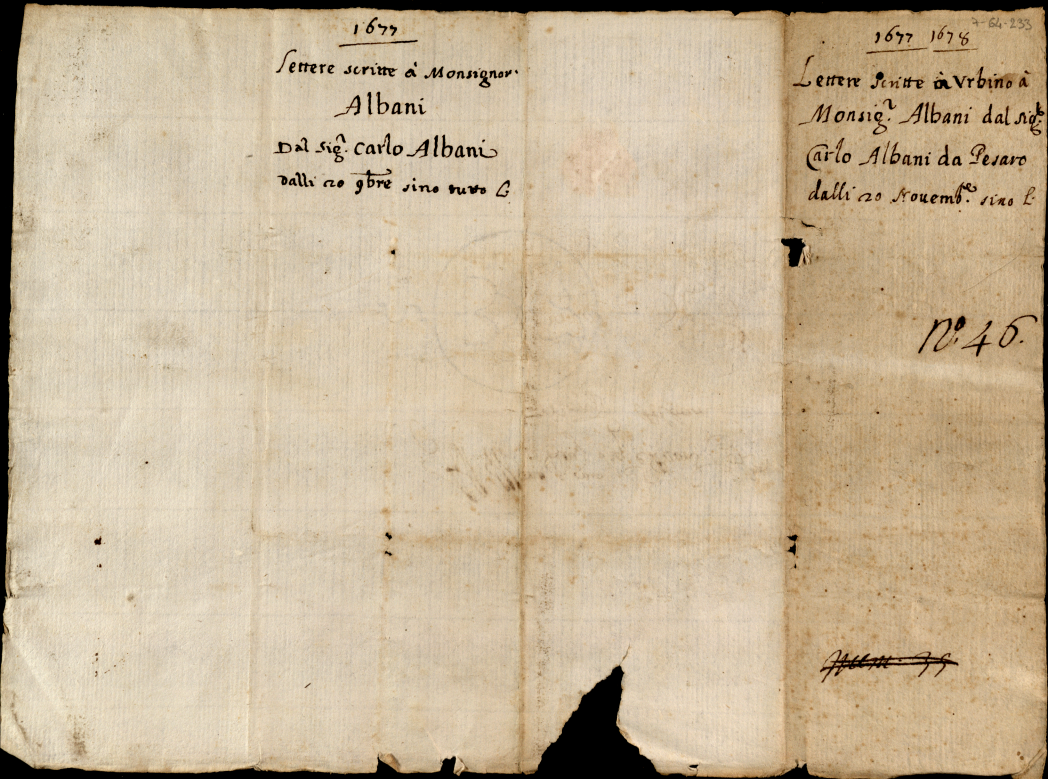 1677
Lettere scritte à Monsignor.
Albani
Dal Sig.r Carlo Albani
dalli 20 9bre sino tutto
7-64-233
1677 1678
Lettere scritte à Urbino à
Monsig.r Albani dal Sig.r
Carlo Albani da Pesaro
dalli 20 Novemb.e sino
No. 46.
Num. 35